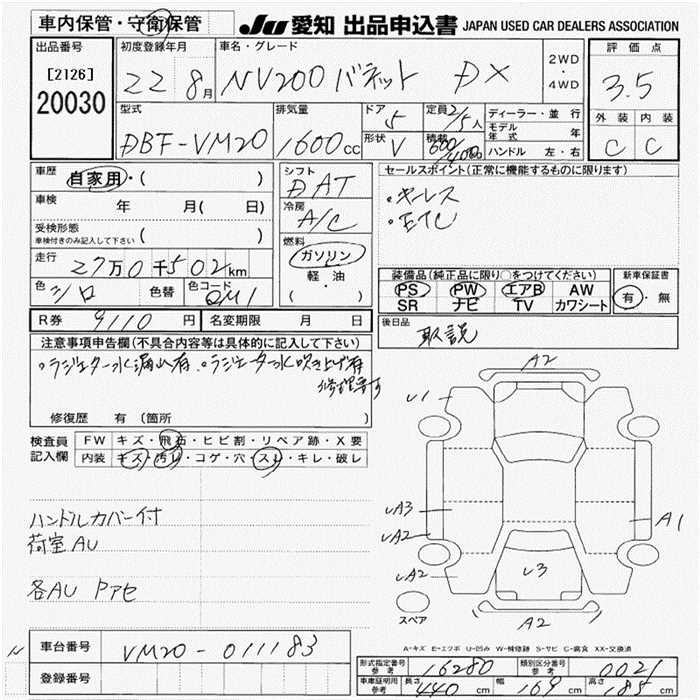 車内保管・守衛保管 JU 愛知 出品申込書 JAPAN USED CAR DEALERS ASSOCIATION
出品番号 [2126] 20030
初度登録年月 22 8月
車名・グレード NV200 バネット DX
2WD・4WD
評価点 3.5
外装 内装
C C
型式 DBF-VM20
排気量 1600cc
ドア 5
形状 V
定員 2/5人
積載 600/400kg
ディーラー・並行
モデル年式 年
ハンドル 左・右
車歴 自家用・( )
車検 年 月( 日)
受検形態 車検付きのみ記入して下さい ( )
走行 27万0千502km
色 シロ 色替 色コード QM1
シフト DAT
冷房 A/C
燃料 ガソリン
軽・油
( )
セールスポイント(正常に機能するものに限ります)
・キーレス
・ETC
装備品(純正品に限り○をつけてください)
PS PW エアB AW
SR ナビ TV カワシート
新車保証書
有・無
後日品 取説
R券 9110円 名変期限 月 日
注意事項申告欄(不具合内容等は具体的に記入して下さい)
・ラジエター水漏れ有 ・ラジエター水吹き上げ有
修理要す
修復歴 有 (箇所 )
検査員記入欄
FW キズ・飛石・ヒビ割・リペア跡・X要
内装 キズ・汚レ・コゲ・穴・スレ・キレ・破レ
ハンドルカバー付
荷室AU
各AU Pアセ
A2
U1
A3
A2
A2
A1
U3
A2
スペア
A-キズ E-エクボ U-凹み W-補修跡 S-サビ C-腐食 XX-交換済
N
車台番号 VM20-011183
登録番号
形式指定番号 参考 16280 類別区分番号 参考 0021
車庫証明用 参考 長さ 440cm 幅 169cm 高さ 185cm